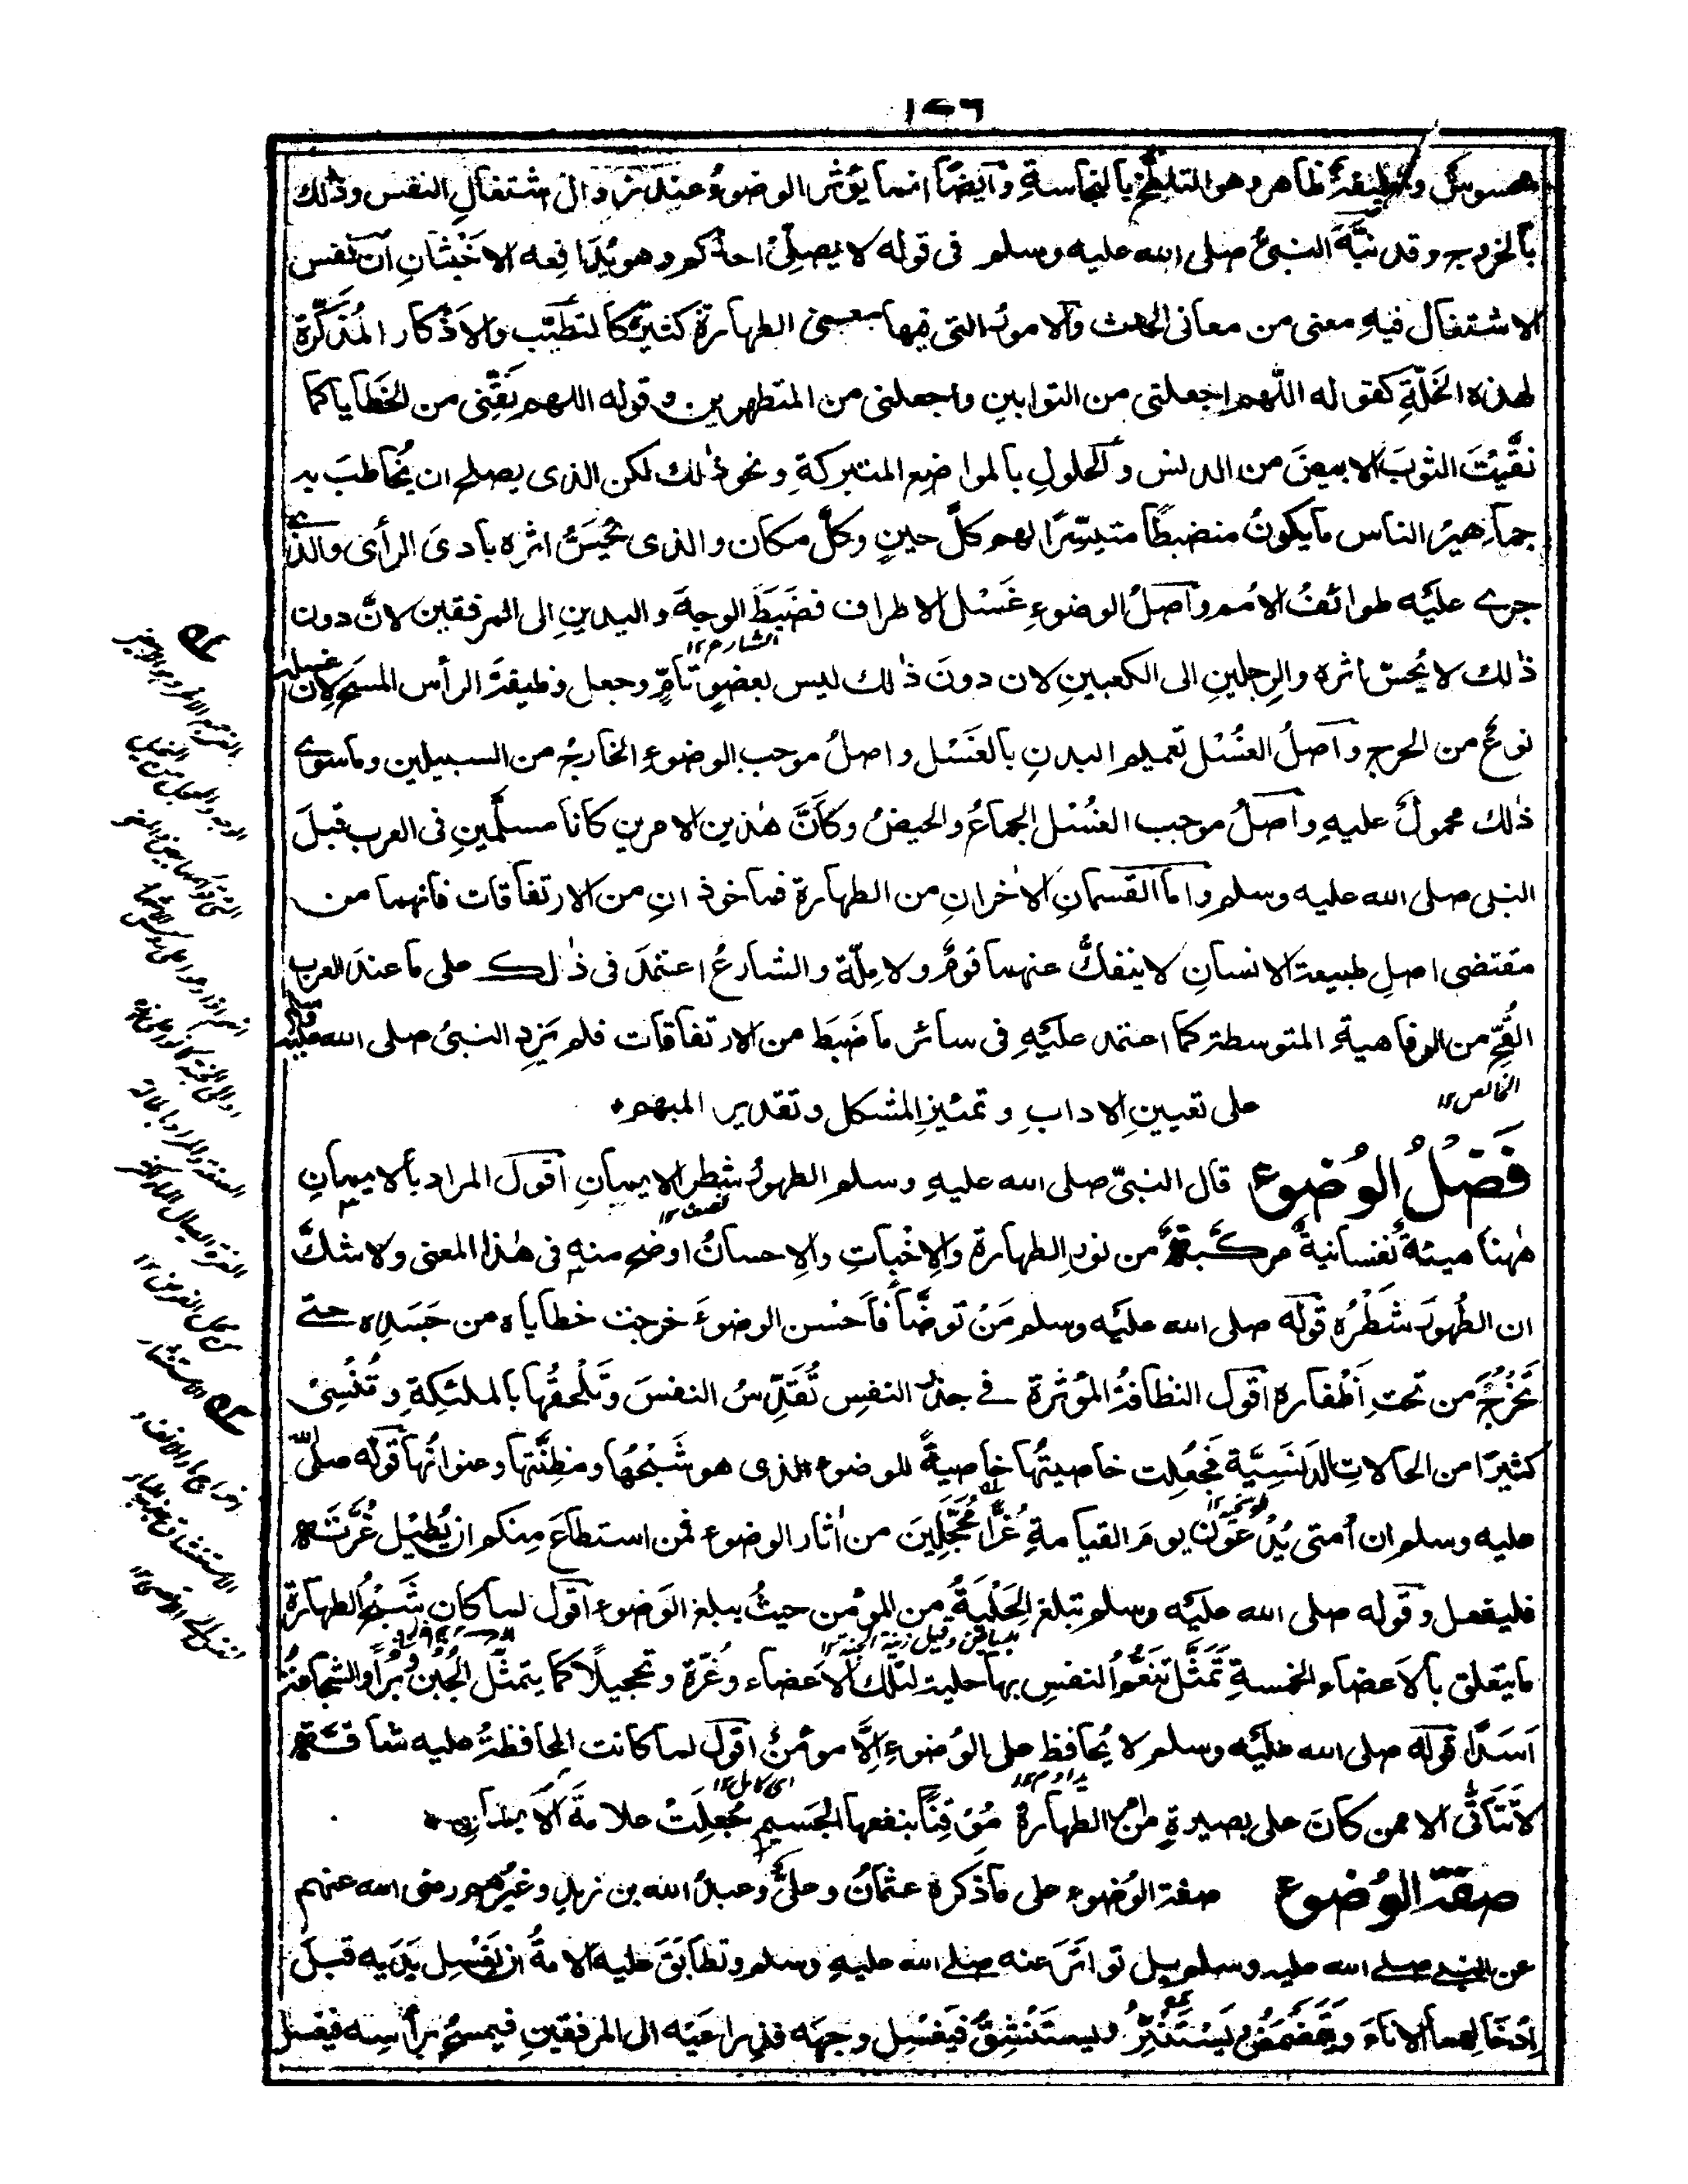 ١٧٦
محسوس وخليفة ظاهر وهو التلطخ بالنجاسة وأيضًا انما يؤثر الوضوءُ عند زوال اشتغال النفس وذلك
بالخروج وقد نبّه النبيُّ صلى الله عليه وسلم فى قوله لا يصلِّ احدُكم وهو يُدافِعه الاخبثانِ ان نفس
الاشتغال فيه معنى من معانى الحدث والامورُ التى فيها معنى الطهارة كثيرة كالتطيّب والاذكار المُذكّرة
لهذه الخَلّةِ كقوله اللّهم اجعلنى من التوابين واجعلنى من المتطهرين وقوله اللهم نَقّنى من الخَطايا كما
نقَّيتَ الثوبَ الابيضَ من الدنس والحلولِ بالمواضع المتبركةِ ونحو ذٰلك لكن الذى يصلح ان يُخاطبَ به
جماهيرُ الناس ما يكونُ منضبطًا متيسّرًا لهم كلَّ حينٍ وكلَّ مكان والذى يُحَسُّ اثره بادىَ الرأى والذى
جرے عليه طوائفُ الامم واصلُ الوضوءِ غَسْل الاطراف فضَبَطَ الوجهَ واليدينِ الى المرفقين لانَّ دون
الشارع ١٢
ذٰلك لا يُحَسّ اثره والرجلينِ الى الكعبينِ لان دونَ ذٰلك ليس بعضوٍ تامٍّ وجعل وظيفةَ الرأس المسحَ لان غسله
نوعٌ من الحرج واصلُ الغُسْل تعميم البدنِ بالغَسْل واصلُ موجب الوضوء الخارجُ من السبيلين وما سوے
ذٰلك محمولٌ عليهِ واصلُ موجب الغُسْل الجماعُ والحيضُ وكأنَّ هٰذين الامرين كانا مسلَّمينِ فى العرب قبلَ
النبى صلى الله عليه وسلم واما القسمانِ الاٰخرانِ من الطهارة فماخوذانِ من الارتفاقات فانهما من
مقتضى اصلِ طبيعة الانسانِ لا ينفكُّ عنهما قومٌ ولا مِلّة والشارعُ اعتمدَ فى ذٰلك على ما عندَ العرب
القُحِّ من الرفاهيةِ المتوسطة كما اعتمد عليهِ فى سائر ما ضَبَطَ من الارتفاقات فلم يَزدِ النبىُّ صلى الله عليه وسلم
الخالص ١٢
على تعيينِ الادابِ وتميُّزِ المشكل وتقدير المبهم
فَضْلُ الوُضُوء قال النبىّ صلى الله عليهِ وسلم الطهورُ شطر الايمانِ اقول المراد بالايمانِ
نصف ١٢
هٰهنا هيئةٌ نفسانيةٌ مركَّبةٌ من نورِ الطهارة والاِخْباتِ والاِحسانُ اوضح منه فى هٰذا المعنى ولا شكَّ
ان الطُهورَ شَطْرُه قوله صلى الله عليه وسلم مَنْ توضّأ فاَحْسن الوضوءَ خرجت خطاياه من جَسَدِه حتے
تَخْرُجَ من تحتِ اَظْفاره اقول النظافةُ المؤثرة فے جذرِ النفسِ تُقَدِّسُ النفسَ وتُلْحقُها بالملٰئكةِ وتُنْسِئ
كثيرًا من الحالاتِ الدَنَسيّة فجُعِلت خاصيتُها خاصيةً للوضوء الذى هو شَبْحُها ومظنَّتها وعنوانُها قوله صلى الله
عليه وسلم ان اُمتى يُدْعَوْن يومَ القيامةِ غُرًّا مُحَجَّلِينَ من اٰثار الوضوء فمن استطاعَ مِنكم ان يُطيل غُرَّتَه
فليفعل وقوله صلى الله عليه وسلم تبلغ الحِلْيةُ من المؤمن حيثُ يبلغ الوَضوء اقول لما كان شَبْحُ الطهارة
ما يتعلق بالاَعضاءِ الخمسةِ تَمَثَّل تنَعُّمُ النفسِ بها حلية لتلك الاَعضاء وغُرّة وتحجيلًا كما يتمثّل الجُبْن وَبْرًا والشجاعةُ
اَسدًا قوله صلى الله عليه وسلم لا يُحافظ على الوُضوءِ اِلَّا مؤمنٌ اقول لما كانت المحافظةُ عليه شاقّةً
يداوم ١٢ اى كامل ١٢
لا تَتَأتّى الا ممن كانَ على بصيرةٍ من امر الطهارة مُوْقِنًا بنفعها الجَسيم جُعِلَتْ علامةَ الايمانِ
صفَة الوُضوء صفة الوُضوء على ما ذَكره عثمانُ وعلىٌّ وعبدُ الله بن زيدٍ وغيرُهم رضى الله عنهم
عن النبے صلے الله عليه وسلم بل تواتَرَ عنه صلے الله عليهِ وسلم وتطابَقَ عليه الامةُ ان يَغْسِل يَدَيه قبلَ
اِدْخالهما الاناءَ ويَتَمَضْمَضُ ويَسْتَنْثِرُ ويستَنْشِقُ فيَغْسِل وجهَه فذِراعَيْه الى المرفقينِ فيمسحُ برأسِه فيغسل